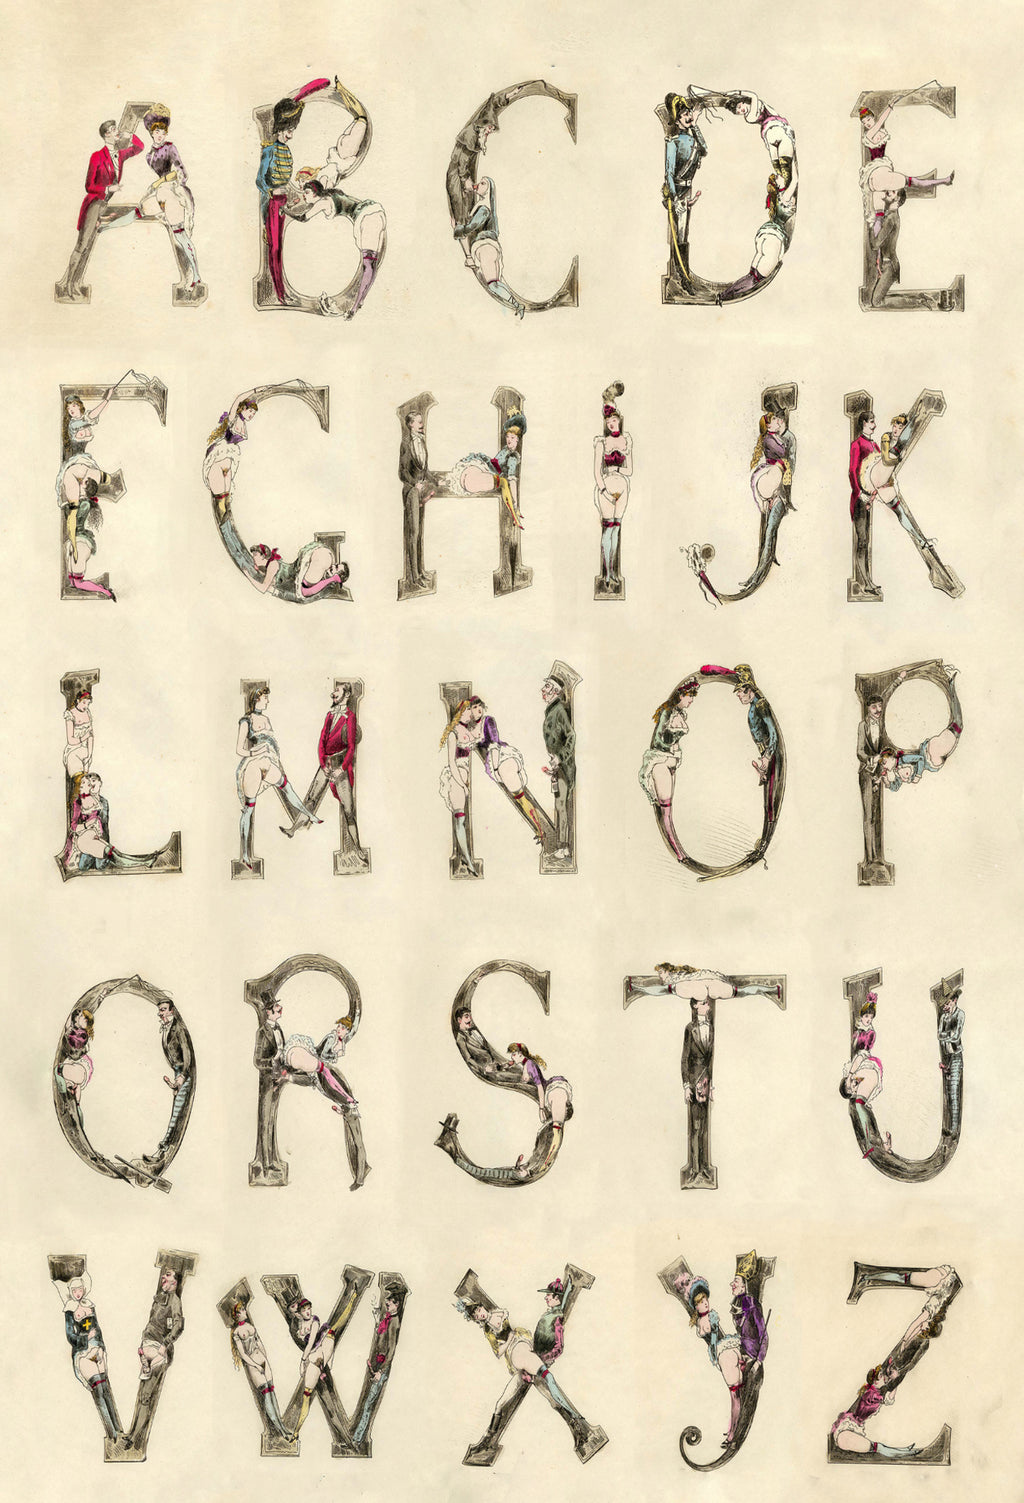 A B C D E
F G H i J K
L M N O P
Q R S T U
V W X y Z